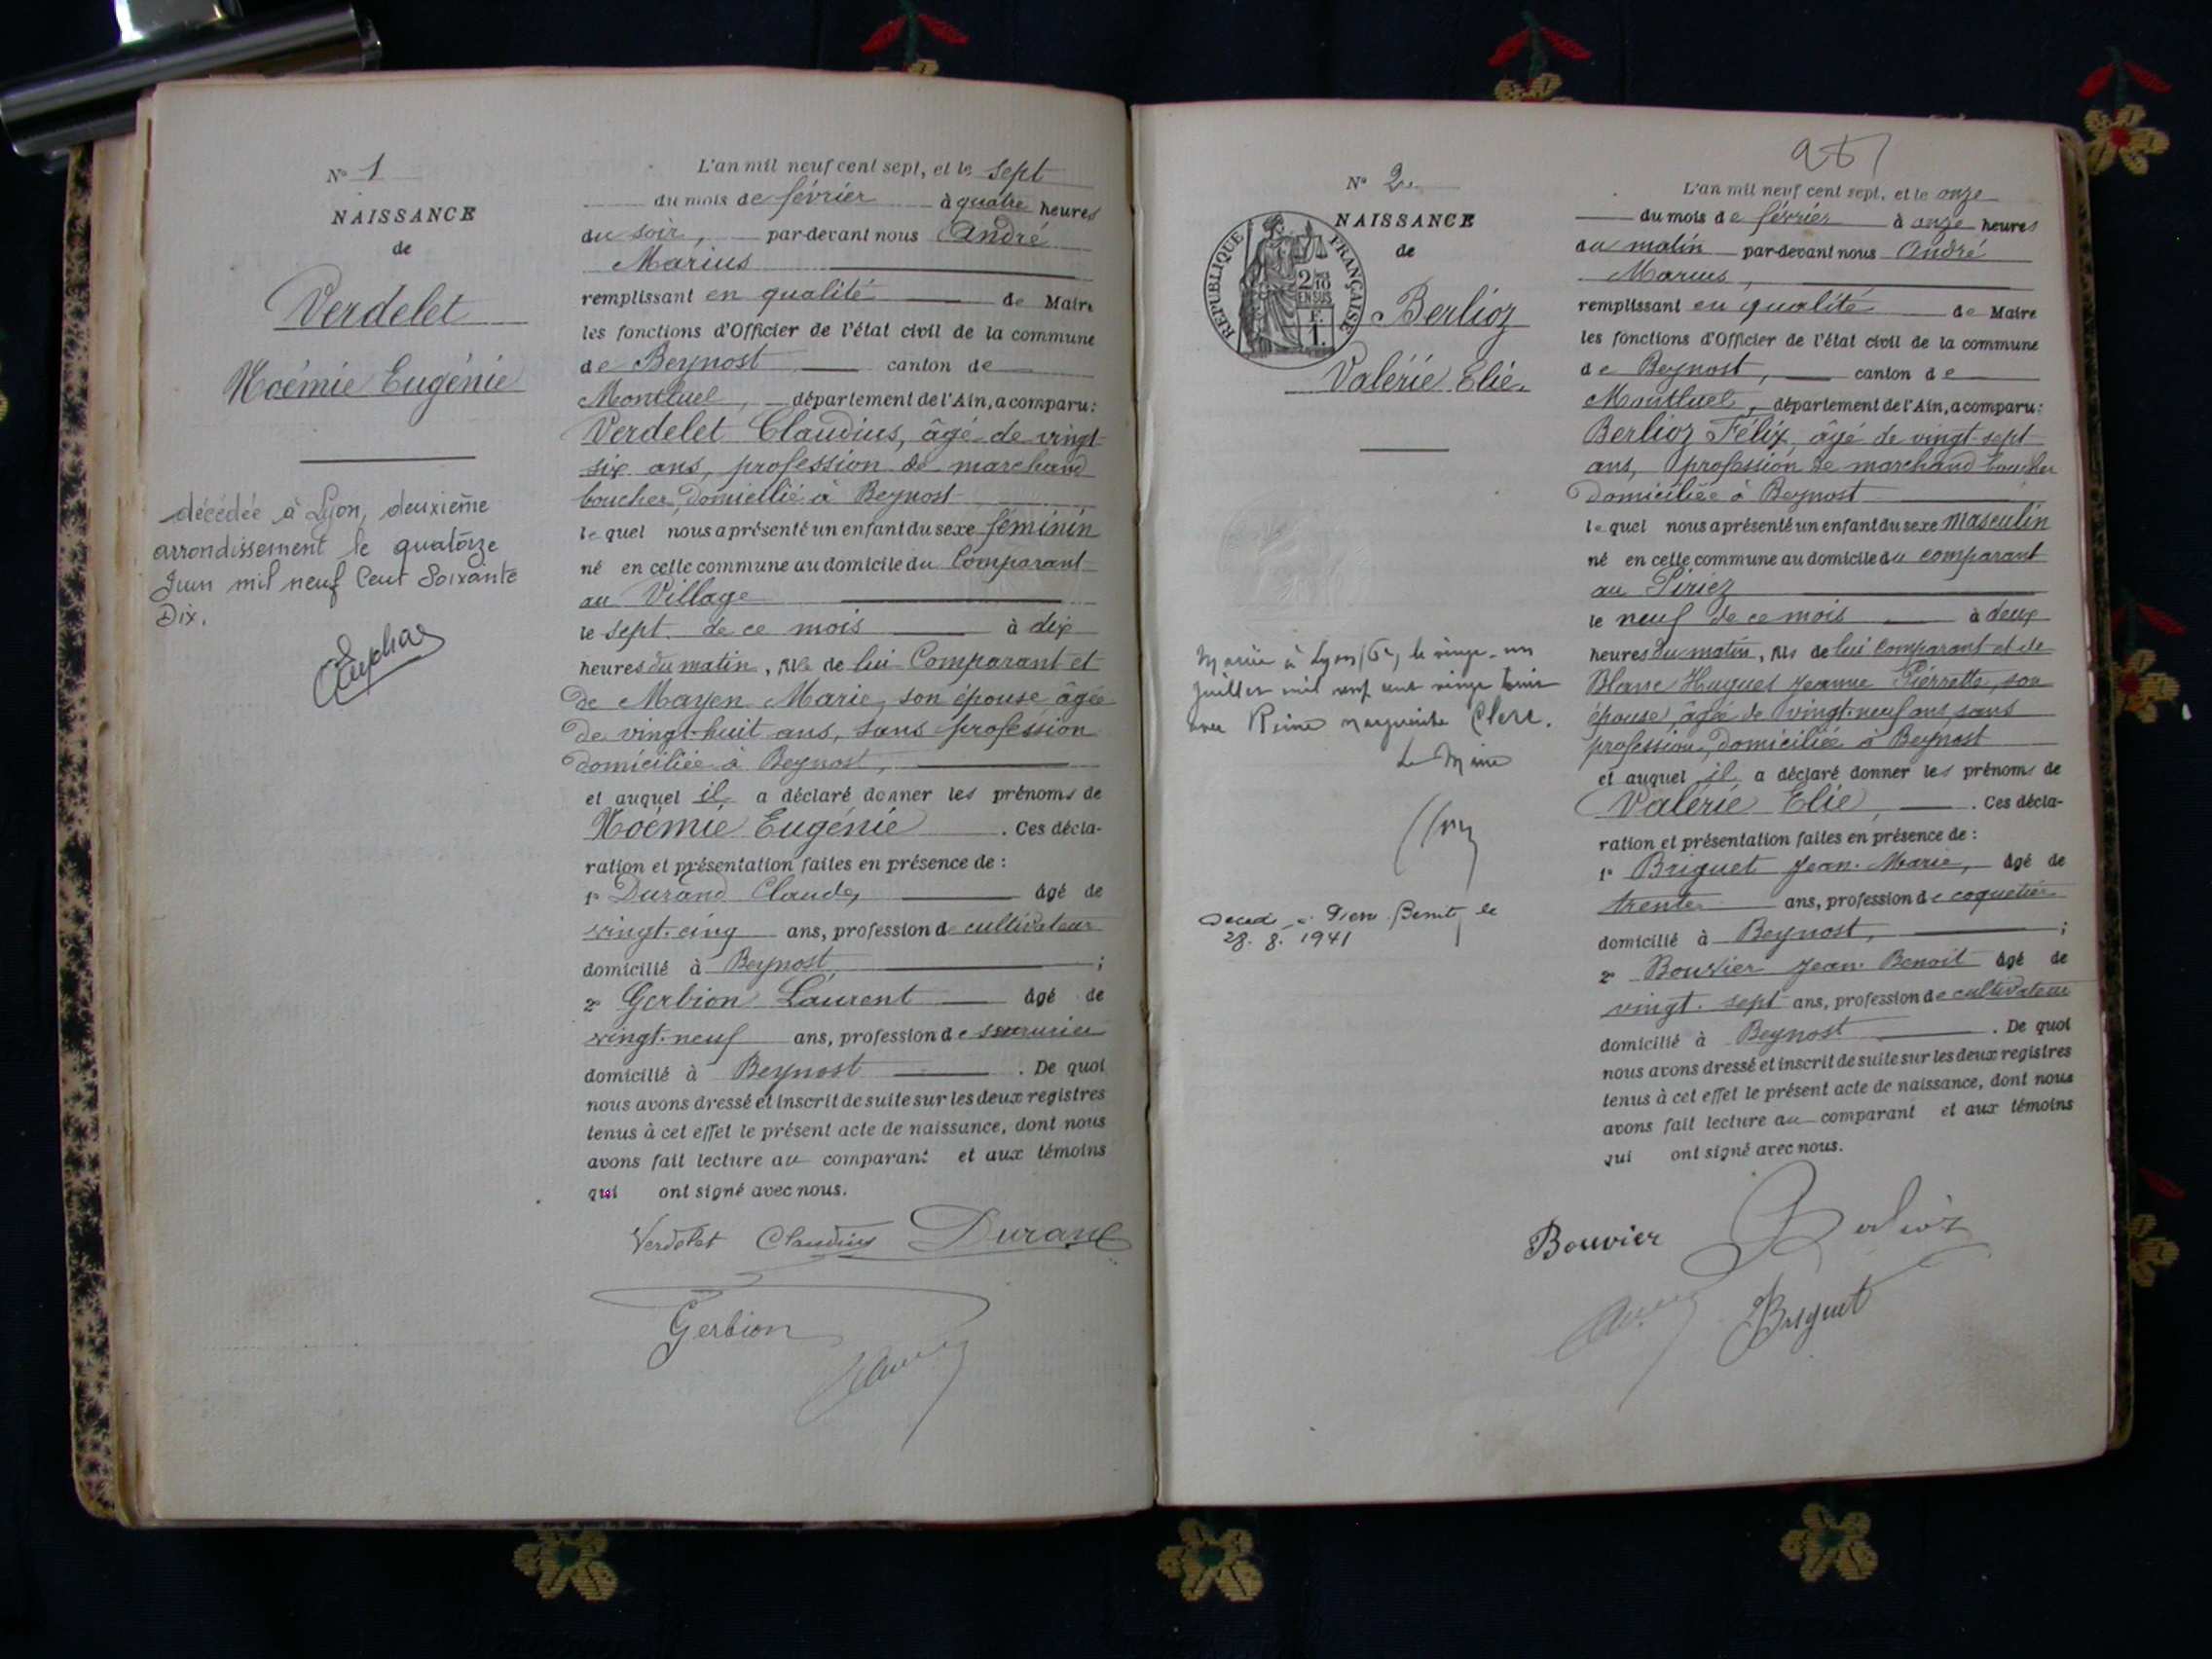 N° 1
NAISSANCE
de
Verdelet
Noémie Eugénie
décédée à Lyon, deuxième
arrondissement le quatorze
Juin mil neuf Cent Soixante
Dix.
L'an mil neuf cent sept, et le sept
du mois de février à quatre heures
du soir, par-devant nous André
Marius
remplissant en qualité de Maire
les fonctions d'Officier de l'état civil de la commune
de Beynost canton de
Montluel, département de l'Ain, a comparu:
Verdelet Claudius, âgé de vingt-
six ans, profession de marchand
boucher, domicilié à Beynost
lequel nous a présenté un enfant du sexe féminin
né en cette commune au domicile du Comparant
au Village
le sept de ce mois à dix
heures du matin, fils de lui Comparant et
de Mayen Marie, son épouse âgée
de vingt-huit ans, sans profession
domiciliée à Beynost,
et auquel il a déclaré donner les prénoms de
Noémie Eugénie. Ces décla-
ration et présentation faites en présence de :
1° Durand Claude, âgé de
vingt-cinq ans, profession de cultivateur
domicilié à Beynost, ;
2° Gerbion Laurent âgé de
vingt-neuf ans, profession de serrurier
domicilié à Beynost. De quoi
nous avons dressé et inscrit de suite sur les deux registres
tenus à cet effet le présent acte de naissance, dont nous
avons fait lecture au comparant et aux témoins
qui ont signé avec nous.
Verdelet Claudius Durand
Gerbion
N° 2
NAISSANCE
de
REPUBLIQUE FRANÇAISE
2/10
EN SUS
F.
1.
Berlioz
Valérie Elie.
Marié à Lyon (6e) le vingt-un
juillet mil neuf cent vingt trois
avec Reine Marguerite Clerc.
Le Maire
Décédé à Pierre-Bénite le
28. 8. 1941
L'an mil neuf cent sept, et le onze
du mois de février à onze heures
du matin par-devant nous André
Marius,
remplissant en qualité de Maire
les fonctions d'Officier de l'état civil de la commune
de Beynost, canton de
Montluel, département de l'Ain, a comparu:
Berlioz Félix, âgé de vingt-sept
ans, profession de marchand boucher
domiciliée à Beynost
lequel nous a présenté un enfant du sexe masculin
né en cette commune au domicile du comparant
au
le neuf de ce mois à deux
heures du matin, fils de lui comparant et de
Blanc Huguet Jeanne Pierrette, son
épouse, âgée de vingt-neuf ans, sans
profession, domiciliée à Beynost
et auquel il a déclaré donner les prénoms de
Valérie Elie,. Ces décla-
ration et présentation faites en présence de :
1° Briguet Jean-Marie, âgé de
trente ans, profession de coquetier
domicilié à Beynost, ;
2° Bouvier Jean-Benoit âgé de
vingt-sept ans, profession de cultivateur
domicilié à Beynost. De quoi
nous avons dressé et inscrit de suite sur les deux registres
tenus à cet effet le présent acte de naissance, dont nous
avons fait lecture au comparant et aux témoins
qui ont signé avec nous.
Bouvier Berlioz
Briguet